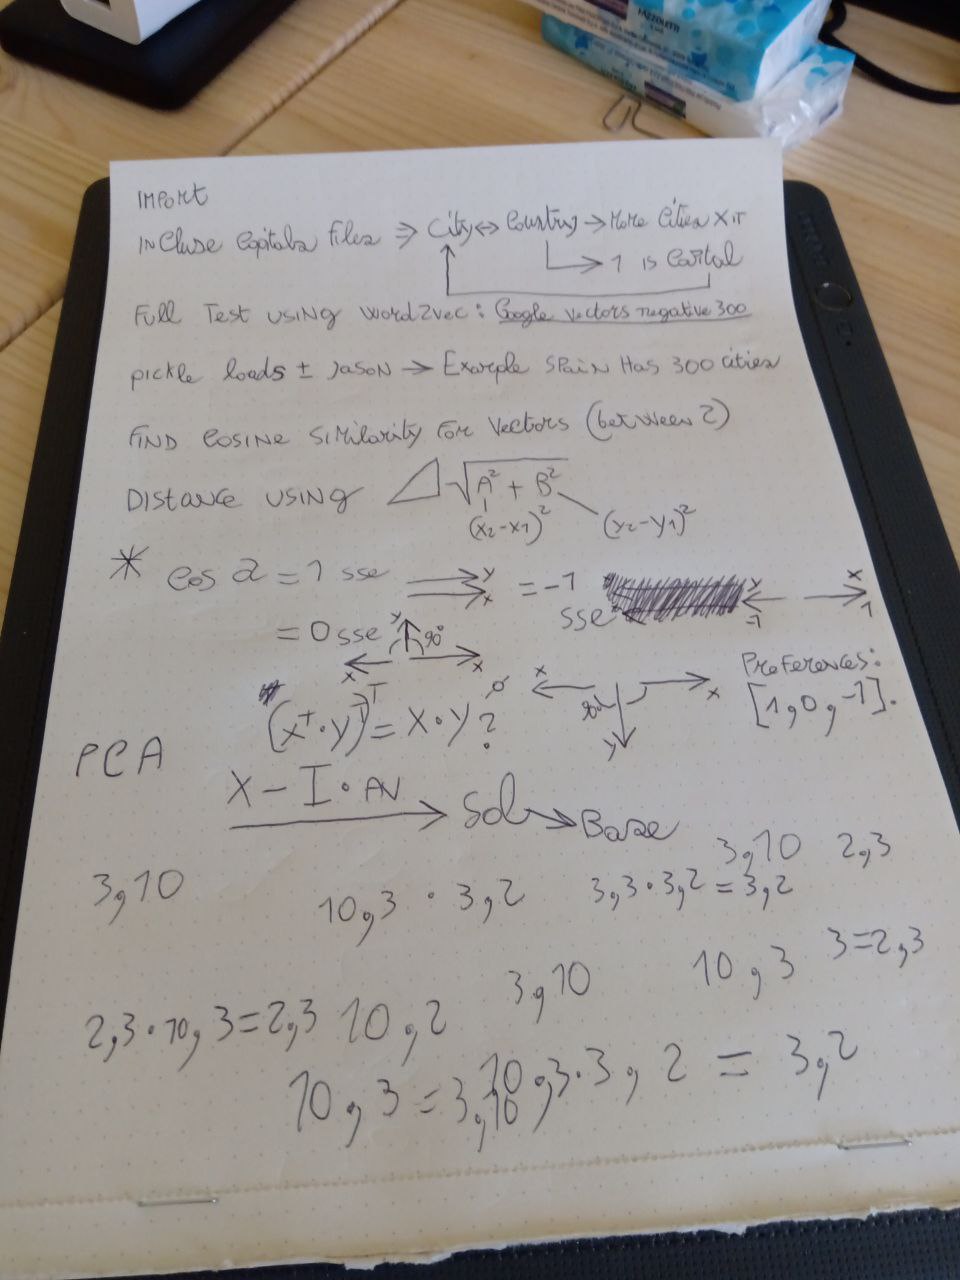 IMPORT
INCluse Capitals Files ⇒ City ↔ Country → More Cities X IT
1 is Caital
Full Test using word2vec: Google vectors negative 300
pickle loads ± Jason → Example SPain Has 300 cities
FIND COSINE SIMilarity For Vectors (between 2)
DISTANCE USING √A² + B²
(x₂-x₁)² (y₂-y₁)²
* Cos a = 1 sse y x = -1 sse y -1 x 1
= 0 sse y 90° x x
Preferences:
x x y
[1,0,-1].
(x^T·y)^T = x·y?
PCA
X - I · AV → Sol → Base
3,10 2,3
3,10 10,3 · 3,2 3,3·3,2 = 3,2
3,10 10,3 3=2,3
2,3·10,3=2,3 10,2
10,3 = 3,10 10,3·3,2 = 3,2